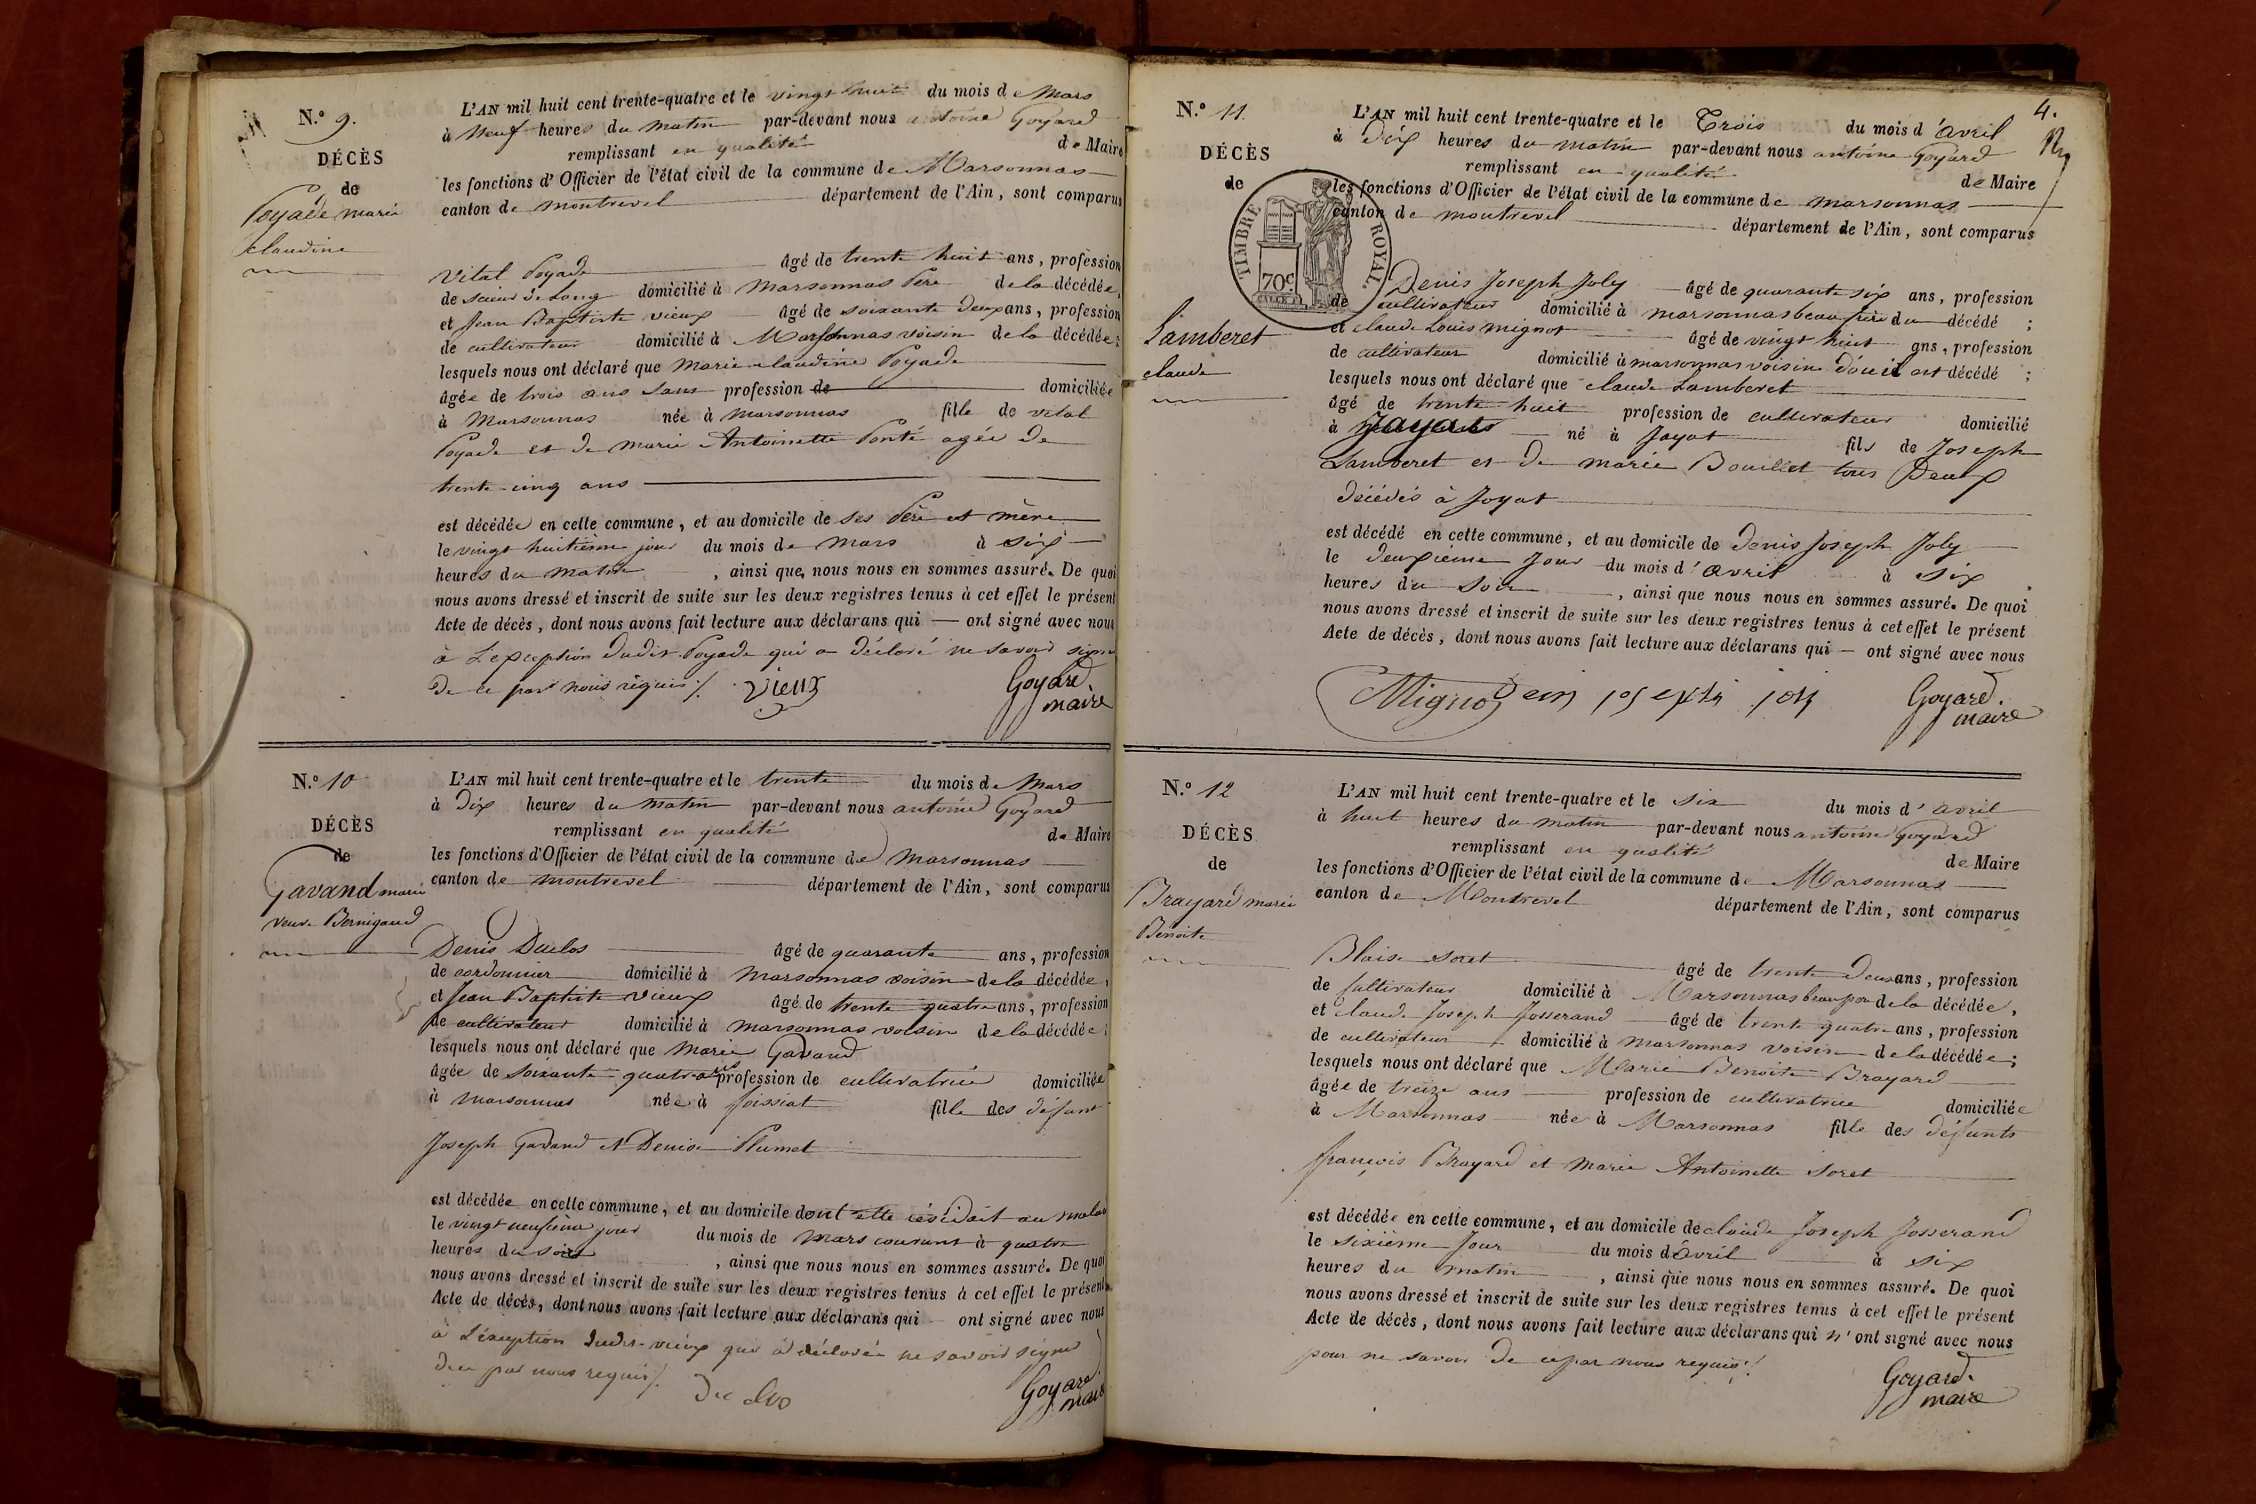 N.o 9.
DÉCÈS
de
Poyade marie
claudine
L'AN mil huit cent trente-quatre et le vingt huit du mois de Mars
à Neuf heures du matin par-devant nous antoine Goyard
remplissant en qualité de Maire
les fonctions d'Officier de l'état civil de la commune de Marsonnas
canton de montrevel département de l'Ain, sont comparus
Vital Poyade âgé de trente huit ans, profession
de scieur de Long domicilié à Marsonnas Père de la décédée,
et Jean Baptiste vieux âgé de soixante deux ans, profession
de cultivateur domicilié à Marsonnas voisin de la décédée;
lesquels nous ont déclaré que Marie claudine Poyade
âgée de trois ans sans profession de domiciliée
à Marsonnas née à Marsonnas fille de vital
Poyade et de marie Antoinette Ponté agée de
trente-cinq ans
est décédée en cette commune, et au domicile de ses Père et mère
le vingt huitième jour du mois de Mars à six
heures du Matin, ainsi que nous nous en sommes assuré. De quoi
nous avons dressé et inscrit de suite sur les deux registres tenus à cet effet le présent
Acte de décès, dont nous avons fait lecture aux déclarans qui — ont signé avec nous
à L'exception dudit Poyade qui a déclaré ne savoir signer
de ce par nous requis /. vieux Goyard
maire
N.o 10
DÉCÈS
de
Gavand marie
veuve Bernigaud
L'AN mil huit cent trente-quatre et le trente du mois de Mars
à Dix heures du matin par-devant nous antoine Goyard
remplissant en qualité de Maire
les fonctions d'Officier de l'état civil de la commune de Marsonnas
canton de montrevel département de l'Ain, sont comparus
Denis Duclos âgé de quarante ans, profession
de cordonnier domicilié à Marsonnas voisin de la décédée,
et Jean Baptiste vieux âgé de trente quatre ans, profession
de cultivateur domicilié à Marsonnas voisin de la décédée;
lesquels nous ont déclaré que Marie Gavand
âgée de soixante-quatre ans profession de cultivatrice domiciliée
à Marsonnas née à foissiat fille des défunt
Joseph Gavand et Denise Plumet
est décédée en cette commune, et au domicile dont elle résidait au
le vingt neufième jour du mois de Mars courant à quatre
heures du soir, ainsi que nous nous en sommes assuré. De quoi
nous avons dressé et inscrit de suite sur les deux registres tenus à cet effet le présent
Acte de décès, dont nous avons fait lecture aux déclarans qui — ont signé avec nous
à L'éxception dudit vieux qui a déclaré ne savoir signer
de ce par nous requis /. Duclos Goyard.
maire
4.
N.o 11.
DÉCÈS
de
TIMBRE ROYAL.
70c.
Lamberet
claude
L'AN mil huit cent trente-quatre et le Trois du mois d'avril
à Dix heures du matin par-devant nous antoine Goyard
remplissant en qualité de Maire
les fonctions d'Officier de l'état civil de la commune de marsonnas
canton de montrevel département de l'Ain, sont comparus
Denis Joseph Joly âgé de quarante six ans, profession
de cultivateur domicilié à marsonnas beau frère du décédé;
et claude Louis mignot âgé de vingt huit ans, profession
de cultivateur domicilié à marsonnas voisin d'où il est décédé;
lesquels nous ont déclaré que claude Lamberet
âgé de trente huit profession de cultivateur domicilié
à Jayat né à Jayat fils de Joseph
Lamberet et de marie Bouillet tous Deux
décédés à Jayat
est décédé en cette commune, et au domicile de Denis Joseph Joly
le deuxième Jour du mois d'avril à six
heures du Soir, ainsi que nous nous en sommes assuré. De quoi
nous avons dressé et inscrit de suite sur les deux registres tenus à cet effet le présent
Acte de décès, dont nous avons fait lecture aux déclarans qui — ont signé avec nous
Mignot Goyard.
maire
N.o 12
DÉCÈS
de
Brayard marie
Benoite
L'AN mil huit cent trente-quatre et le six du mois d'avril
à huit heures du matin par-devant nous antoine Goyard
remplissant en qualité de Maire
les fonctions d'Officier de l'état civil de la commune de Marsonnas
canton de Montrevel département de l'Ain, sont comparus
Blaise Soret âgé de trente Deux ans, profession
de cultivateur domicilié à Marsonnas de la décédée,
et claude Joseph Josserand âgé de trente quatre ans, profession
de cultivateur domicilié à marsonnas voisin de la décédée;
lesquels nous ont déclaré que Marie Benoite Brayard
âgée de treize ans profession de cultivatrice domiciliée
à Marsonnas née à Marsonnas fille des défunts
françois Brayard et Marie Antoinette Soret
est décédée en cette commune, et au domicile de claude Joseph Josserand
le sixième Jour du mois d'avril à six
heures du matin, ainsi que nous nous en sommes assuré. De quoi
nous avons dressé et inscrit de suite sur les deux registres tenus à cet effet le présent
Acte de décès, dont nous avons fait lecture aux déclarans qui n'ont signé avec nous
pour ne savoir de ce par nous requis /. Goyard.
maire